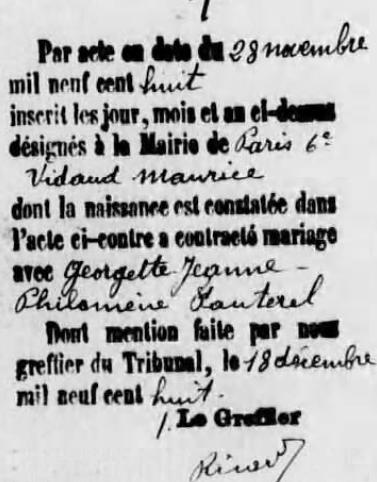 Par acte en date du 28 novembre
mil neuf cent huit
inscrit les jour, mois et an ci-dessus
désignés à la Mairie de Paris 6e
Vidaud Maurice
dont la naissance est constatée dans
l'acte ci-contre a contracté mariage
avec Georgette Jeanne
Philomène Lauterel
Dont mention faite par nous
greffier du Tribunal, le 18 décembre
mil neuf cent huit.
Le Greffier